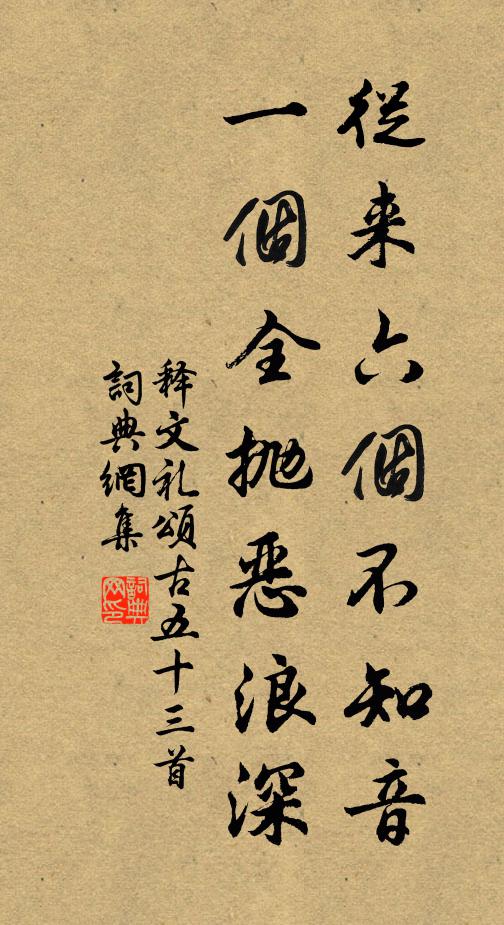 從来六個不知音
一個全抛恶浪深
释文礼頌古五十三首
詞典網集
詞典網印